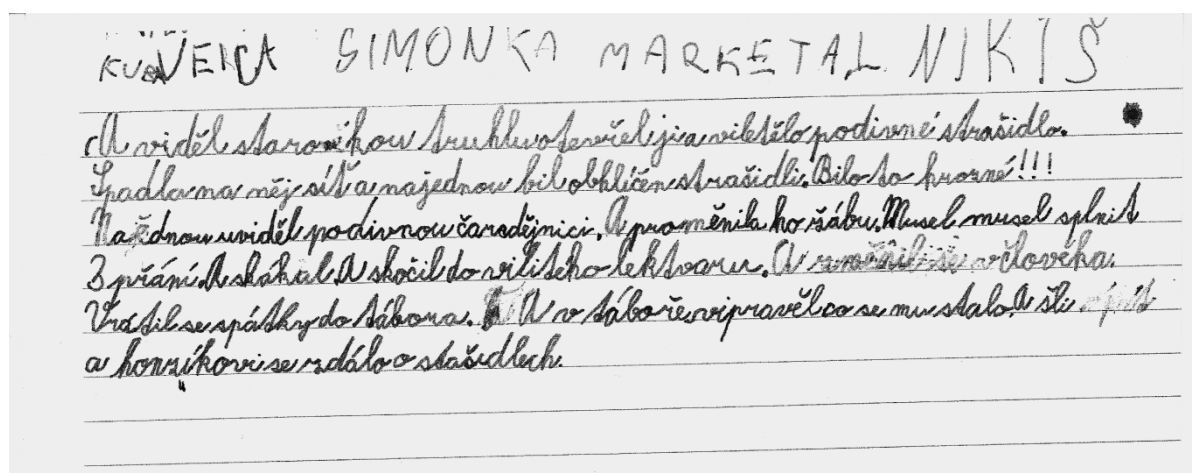 VEJCA SIMONKA MARKETA L. NIKIŠ
A viděl starou truhlu otevřel ji a viletělo podivné strašidlo.
Spadla na něj síť a najednou bil obklíčen strašidli. Bilo to hrozné!!!
Najednou uviděl podivnou čarodějnici. A proměnila ho žábu. Musel musel splnit
3 přání. A skákal. A skočil do vilitého lektvaru. A změnil se v člověka.
Vrátil se spátky do tábora. A v táboře vipravěl co se mu stalo. A šli spát
a honzíkovi se zdálo o stašidlech.